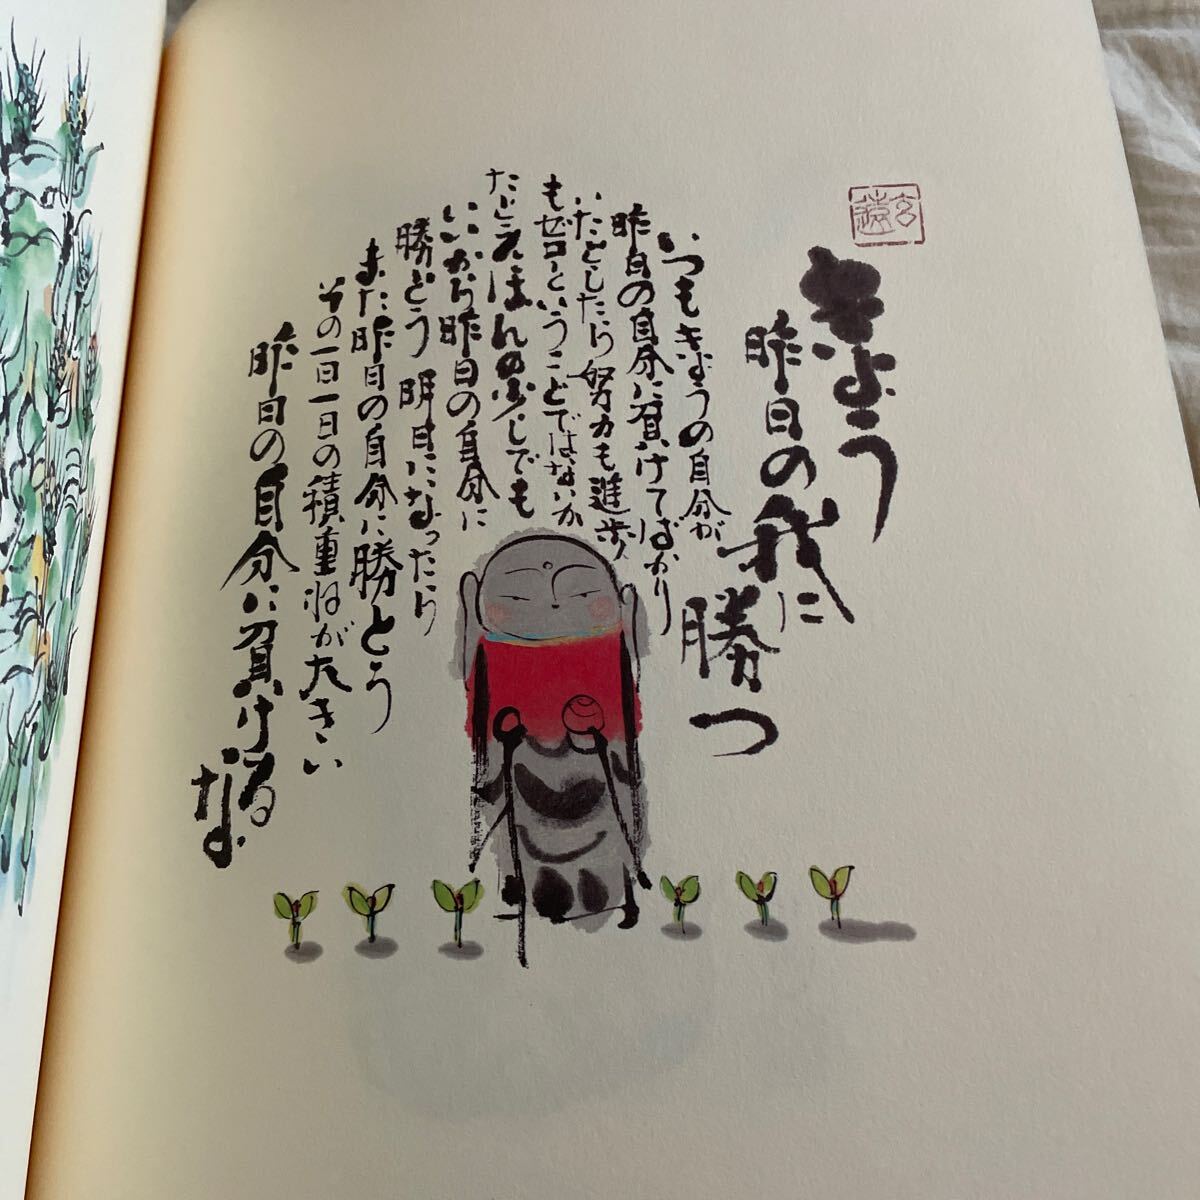 きょう
昨日の我に
勝つ
いつもきょうの自分が
昨日の自分に負けてばかり
いたとしたら努力も進歩
もゼロということではないか
たとえほんの少しでも
いいから昨日の自分に
勝とう 明日になったら
また昨日の自分に勝とう
その一日一日の積重ねが大きい
昨日の自分に負ける
な